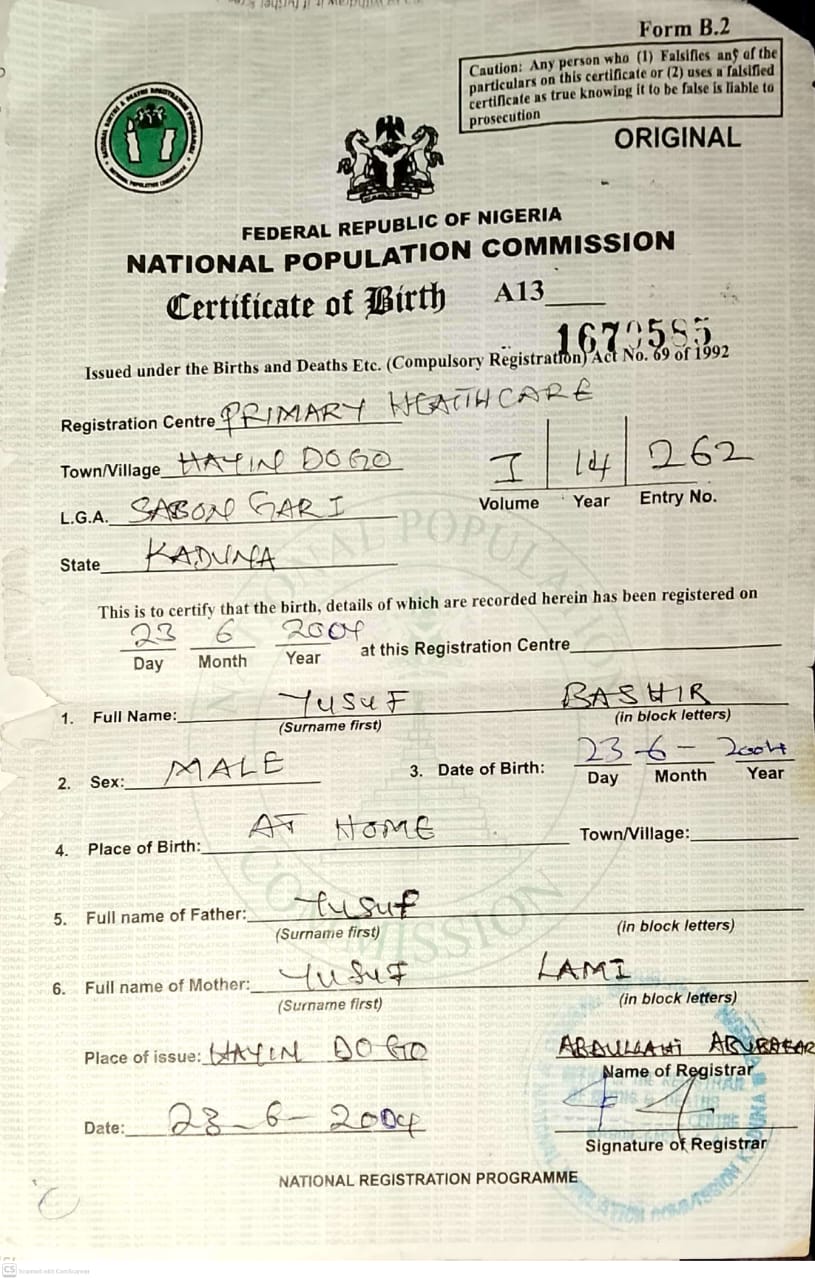 Form B.2
Caution: Any person who (1) Falsifies any of the
particulars on this certificate or (2) uses a falsified
certificate as true knowing it to be false is liable to
prosecution
ORIGINAL
FEDERAL REPUBLIC OF NIGERIA
NATIONAL POPULATION COMMISSION
Certificate of Birth A13
Issued under the Births and Deaths Etc. (Compulsory Registration) Act No. 69 of 1992
Registration Centre PRIMARY HEALTHCARE
Town/Village HAYIN DOGO
I 14 262
Volume Year Entry No.
L.G.A. SABON GARI
State KADUNA
NATIONAL POPULATION COMMISSION
This is to certify that the birth, details of which are recorded herein has been registered on
23 6 2004 at this Registration Centre
Day Month Year
1. Full Name: YUSUF BASHIR
(Surname first) (in block letters)
2. Sex: MALE 3. Date of Birth: 23-6-2004
Day Month Year
4. Place of Birth: AT HOME Town/Village:
5. Full name of Father: YUSUF
(Surname first) (in block letters)
6. Full name of Mother: YUSUF LAMI
(Surname first) (in block letters)
Place of issue: HAYIN DOGO ABDULLAHI ABUBAKAR
Name of Registrar
Date: 23-6-2004
Signature of Registrar
NATIONAL REGISTRATION PROGRAMME
CS Scanned with CamScanner